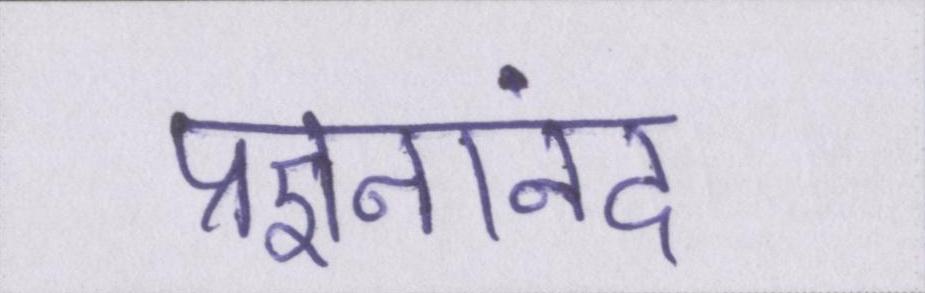 प्रज्ञनानंद